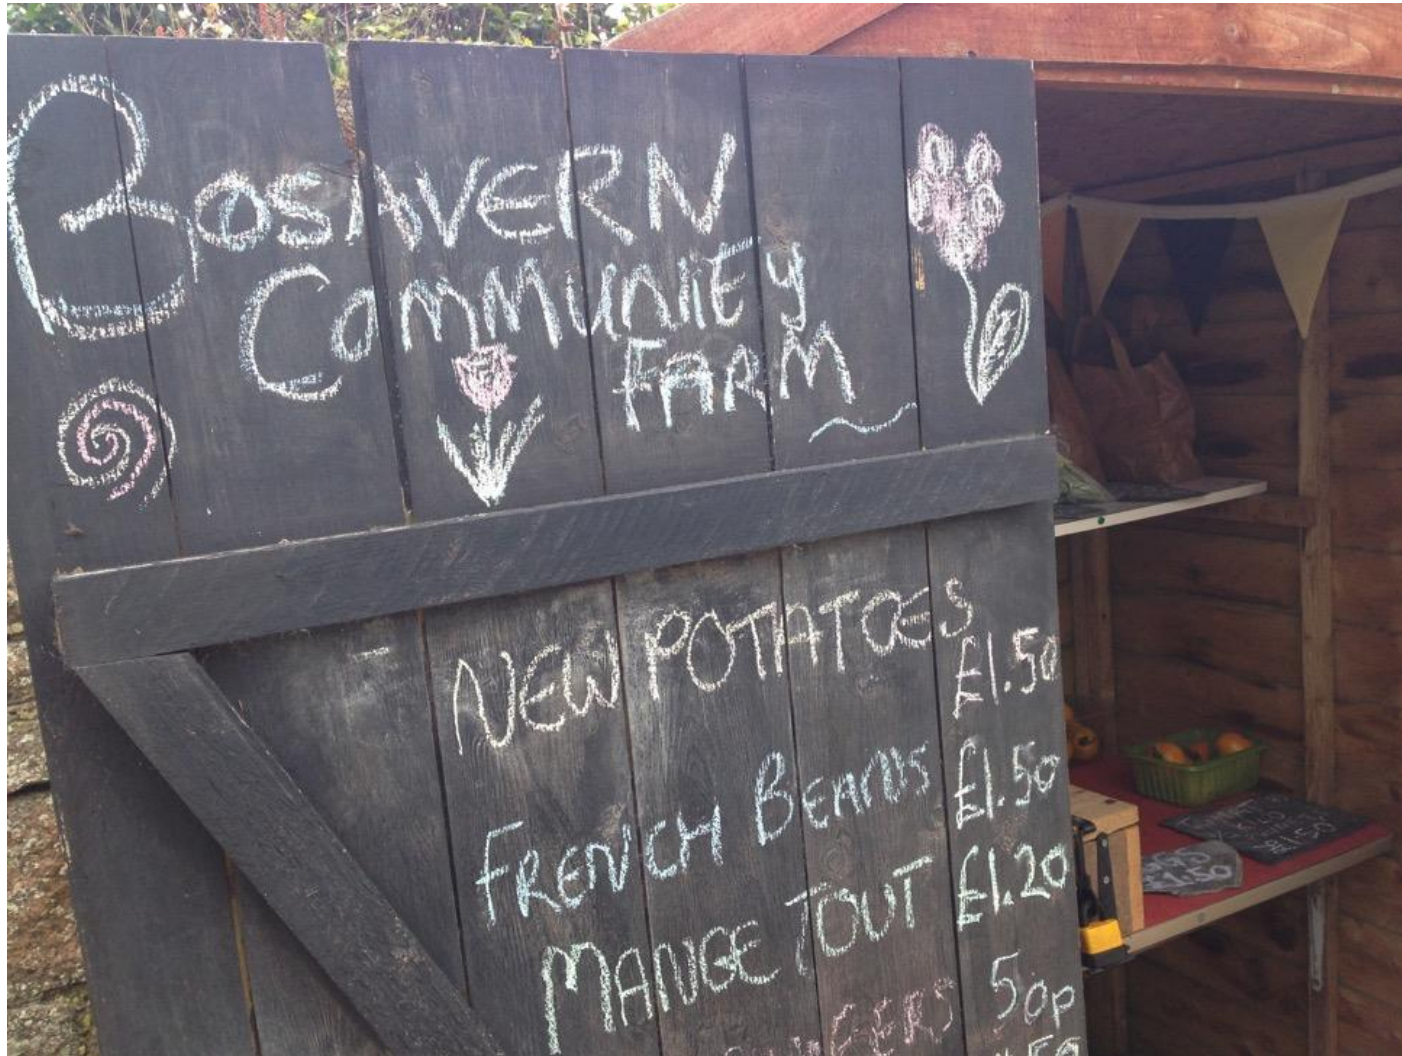 BOSAVERN
COMMUNITY
FARM
NEW POTATOES £1.50
FRENCH BEANS £1.50
MANGE TOUT £1.20
50p